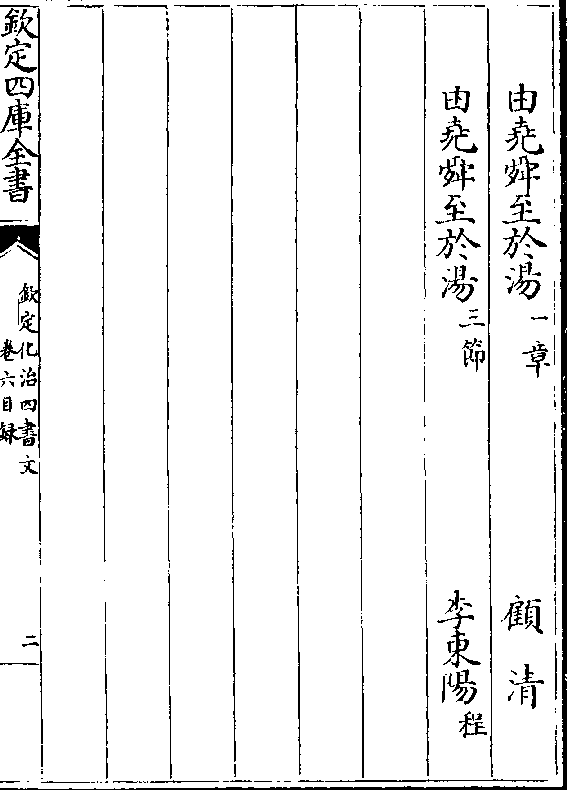 由堯舜至於湯 一章 顧清
由堯舜至於湯 三節 李東陽 程
欽定四庫全書
欽定化治四書文
卷六目録
二